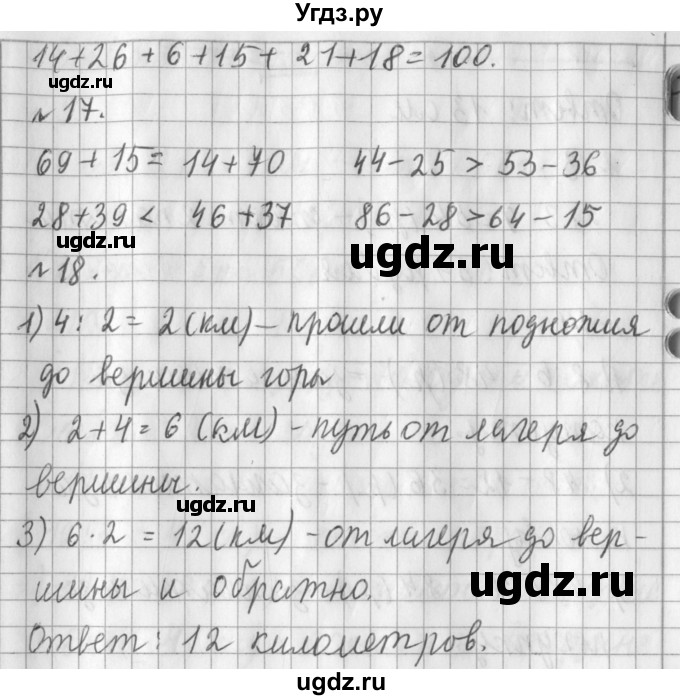 Угдз.ру
14+26+6+15+21+18=100.
ugdz.ru
№17.
69+15=14+70 44-25>53-36
ugdz.ru
28+39< 46+37 86-28>64-15
ugdz.ru
№18.
1) 4:2=2(км)-прошли от подножия
до вершины горы
2) 2+4=6 (км)-путь от лагеря до
вершины.
ugdz.ru
3) 6·2=12(км)-от лагеря до вер-
шины и обратно.
ugdz.ru
Ответ: 12 километров.
ugdz.ru
ugdz.ru